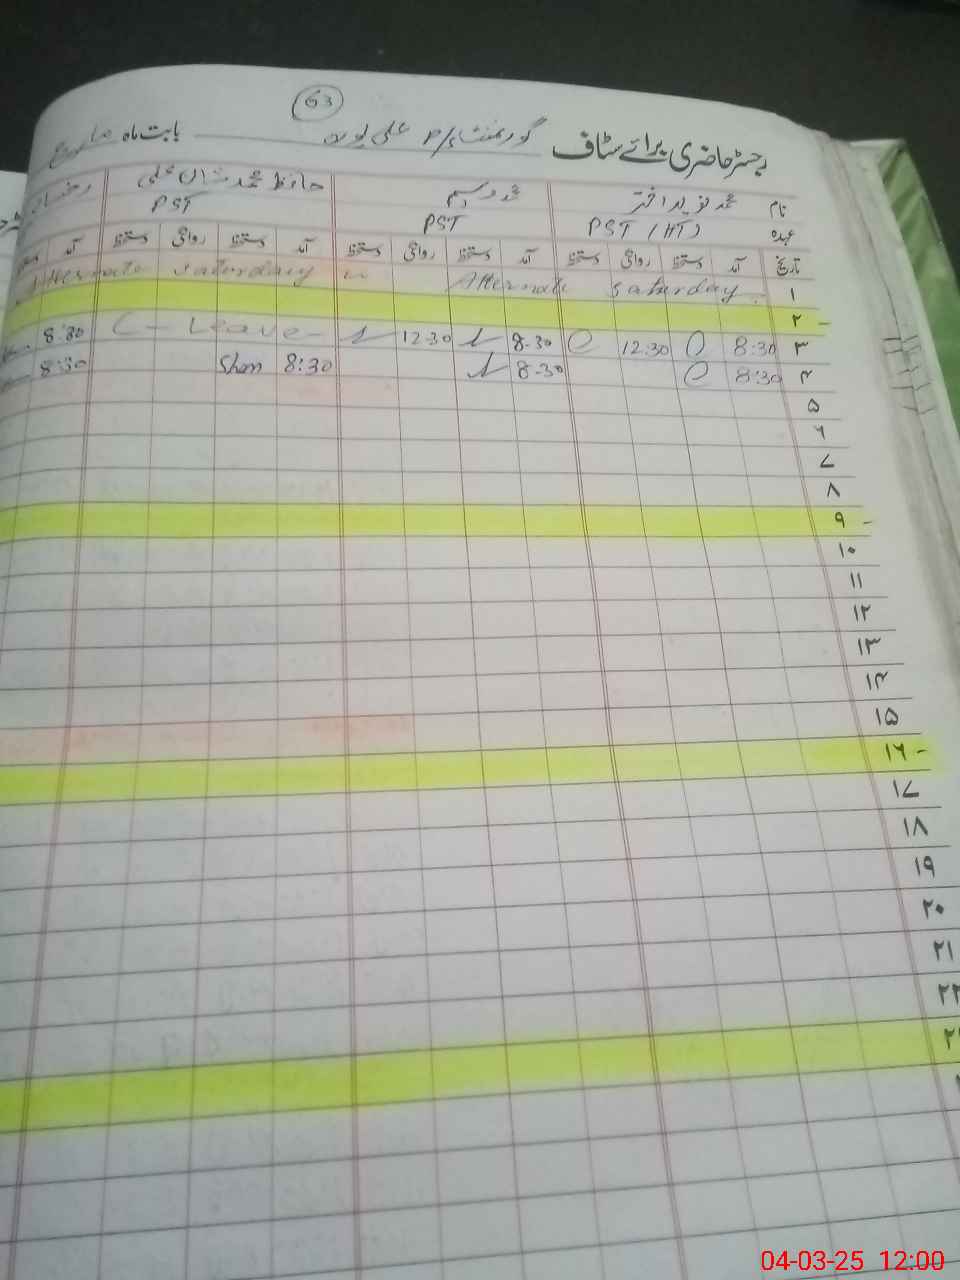 63
رجسٹر حاضری برائے سٹاف گورنمنٹ P/S علی پور بابت ماہ مارچ
نام محمد نوید اختر محمد وسیم حافظ محمد علی
عہدہ PST (HT) PST PST
تاریخ آمد دستخط روانگی دستخط آمد دستخط روانگی دستخط آمد دستخط روانگی دستخط آمد
۱ Alternate Saturday Alternate Saturday
۲ -
۳ 8:30 12:30 8-30 12-30 C - Leave - 8:30
۴ 8:30 8-30 8:30 Shan 8:30
۵
۶
۷
۸
۹ -
۱۰
۱۱
۱۲
۱۳
۱۴
۱۵
۱۶ -
۱۷
۱۸
۱۹
۲۰
۲۱
۲۲
04-03-25 12:00